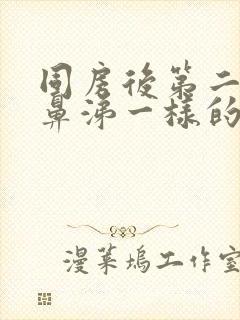 同房後第二
鼻涕一樣的
漫葉塢工作室